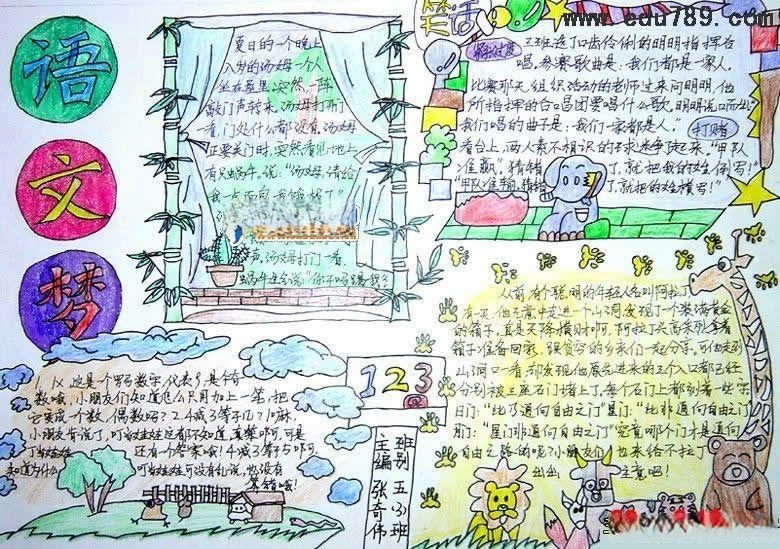 www.edu789.com
语
文
梦
夏日的一个晚上
八岁的汤姆一个人
坐在屋里,突然,一阵
敲门声传来,汤姆打开门
一看,门外什么都没有,汤姆
正要关门,突然看见地上
有只蜗牛,说:“汤姆,请给
声,汤姆打开门一看,
笑话
三班选了口齿伶俐的明明指挥合
唱,参赛歌曲是:我们都是一家人。
比赛那天,组织活动的老师过来问明明,他
所指挥的合唱团要唱什么歌,明明脱口而出:
“我们唱的曲子是:我们一家都是人。”
打赌
看台上,两人素不相识的球迷争起来,“甲队
准赢,猜错了,就把我的姓倒写!”
“甲队准输,猜错了,就把我的姓横写!”
1.Ⅸ,这是个罗马数字,代表9,是个奇
数哦,小朋友们知道怎么只用加上一笔,把
它变成个数,偶数吗?2.4减3等于几?10嘛,
小朋友肯定说了,叮当娃娃这都不知道,真笨啊,可是
叮当娃娃还有个答案哦!4减3等于5啊,可
知道为什么
123
班别 五(3)班
主编 张奇伟
从前,有个聪明的年轻人名叫阿拉丁,
有一天,他无意中走进一个山洞,发现了一个装满黄金
的箱子,真是天降横财啊,阿拉丁兴高采烈拿着
箱子准备回家,跟贫穷的乡亲们一起分享,可他走到
山洞口一看,却发现他原先进来的三个入口都已经
分别被三座石门堵上了,每个石门上都刻着一些字,
日门:“此乃通向自由之门”星门:“此非通向自由之门”
月门:“星门非通向自由之门”究竟哪个门才是通向
自由之路的呢?小朋友们也来给阿拉丁
出出主意吧!